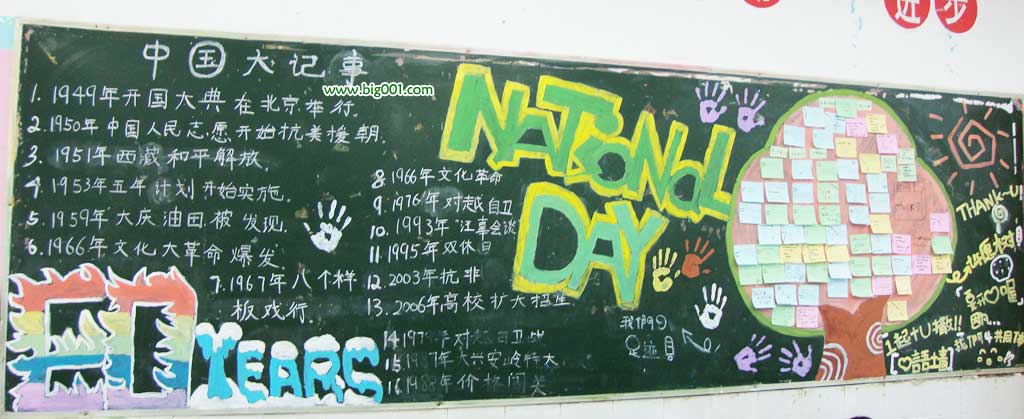 进步
中国大记事
www.big001.com
1. 1949年开国大典在北京举行.
2. 1950年中国人民志愿开始抗美援朝.
3. 1951年西藏和平解放.
4. 1953年五年计划开始实施.
5. 1959年大庆油田被发现.
6. 1966年文化大革命爆发
7. 1967年八个样
板戏行.
8. 1966年文化革命
9. 1976年对越自卫
10. 1993年汪辜会谈
11. 1995年双休日
12. 2003年抗非
13. 2006年高校扩大招生
14. 197 年对越自卫战
15. 1987年大兴安岭特大
16. 1988年价格闯关
60 YEARS
NATIONAL
DAY
我們的
足迹
THANK~U
许愿樹
1起十U撒!!
語土墙